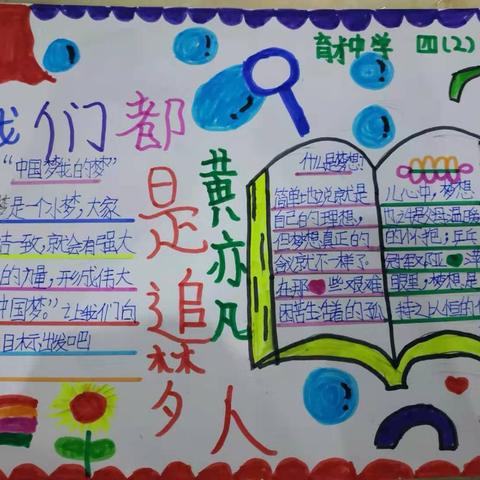 育才中学 四(2)
我们都
是追梦人
黄亦凡
“中国梦我的梦”
是一个小梦,大家
一致,就会有强大
的力量,形成伟大
中国梦。”让我们向
目标出发吧!
什么是梦想?
简单地说就是
自己的理想,
但梦想真正的
含义就不一样了。
在那些艰难
困苦生活着的孤
儿心中,梦想
眼里,梦想是
持之以恒的